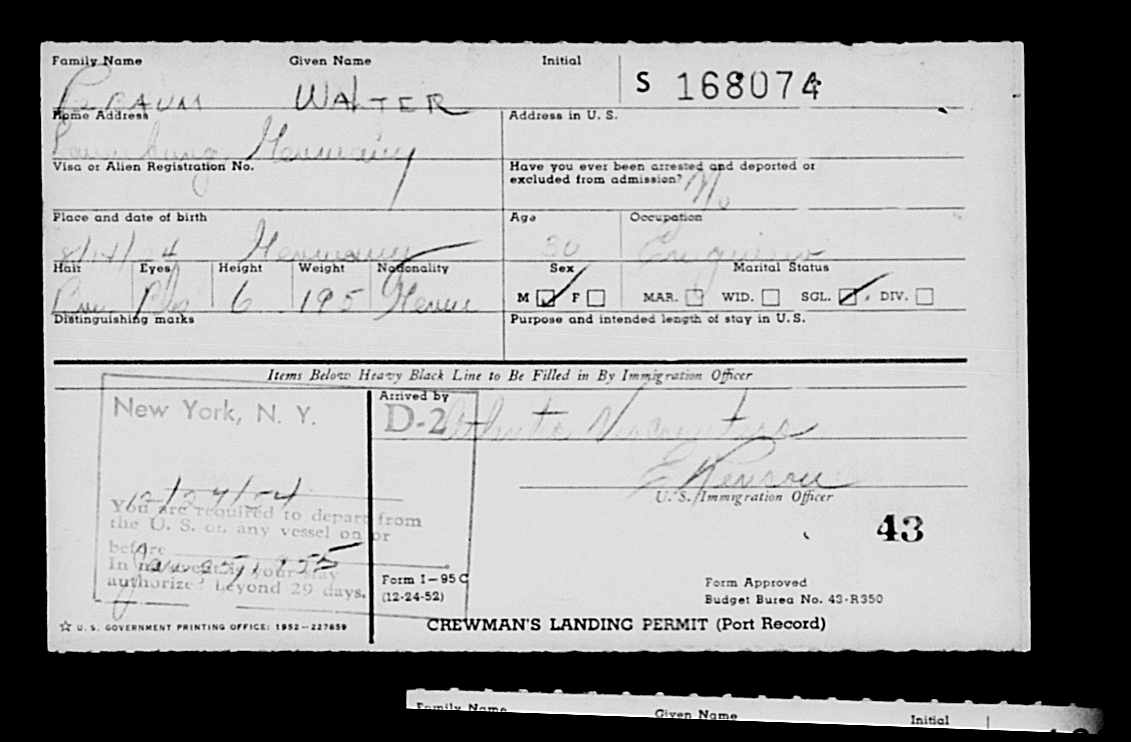 Family Name Given Name Initial
S 168074
WALTER
Home Address Address in U. S.
Germany
Visa or Alien Registration No. Have you ever been arrested and deported or
excluded from admission? No
Place and date of birth Age Occupation
Germany 30
Hair Eyes Height Weight Nationality Sex Marital Status
6 195 Germ
M F MAR. WID. SGL. DIV.
Distinguishing marks Purpose and intended length of stay in U. S.
Items Below Heavy Black Line to Be Filled in By Immigration Officer
New York, N. Y.
Arrived by
D-2
U. S. Immigration Officer
12/27/54
You are required to depart from
the U. S. on any vessel on or
before Jan 25, 1955
In no event is your stay
authorized beyond 29 days.
43
Form I-95C
(12-24-52)
Form Approved
Budget Burea No. 43-R350
☆ U. S. GOVERNMENT PRINTING OFFICE: 1952—227659
CREWMAN'S LANDING PERMIT (Port Record)
Family Name Given Name Initial